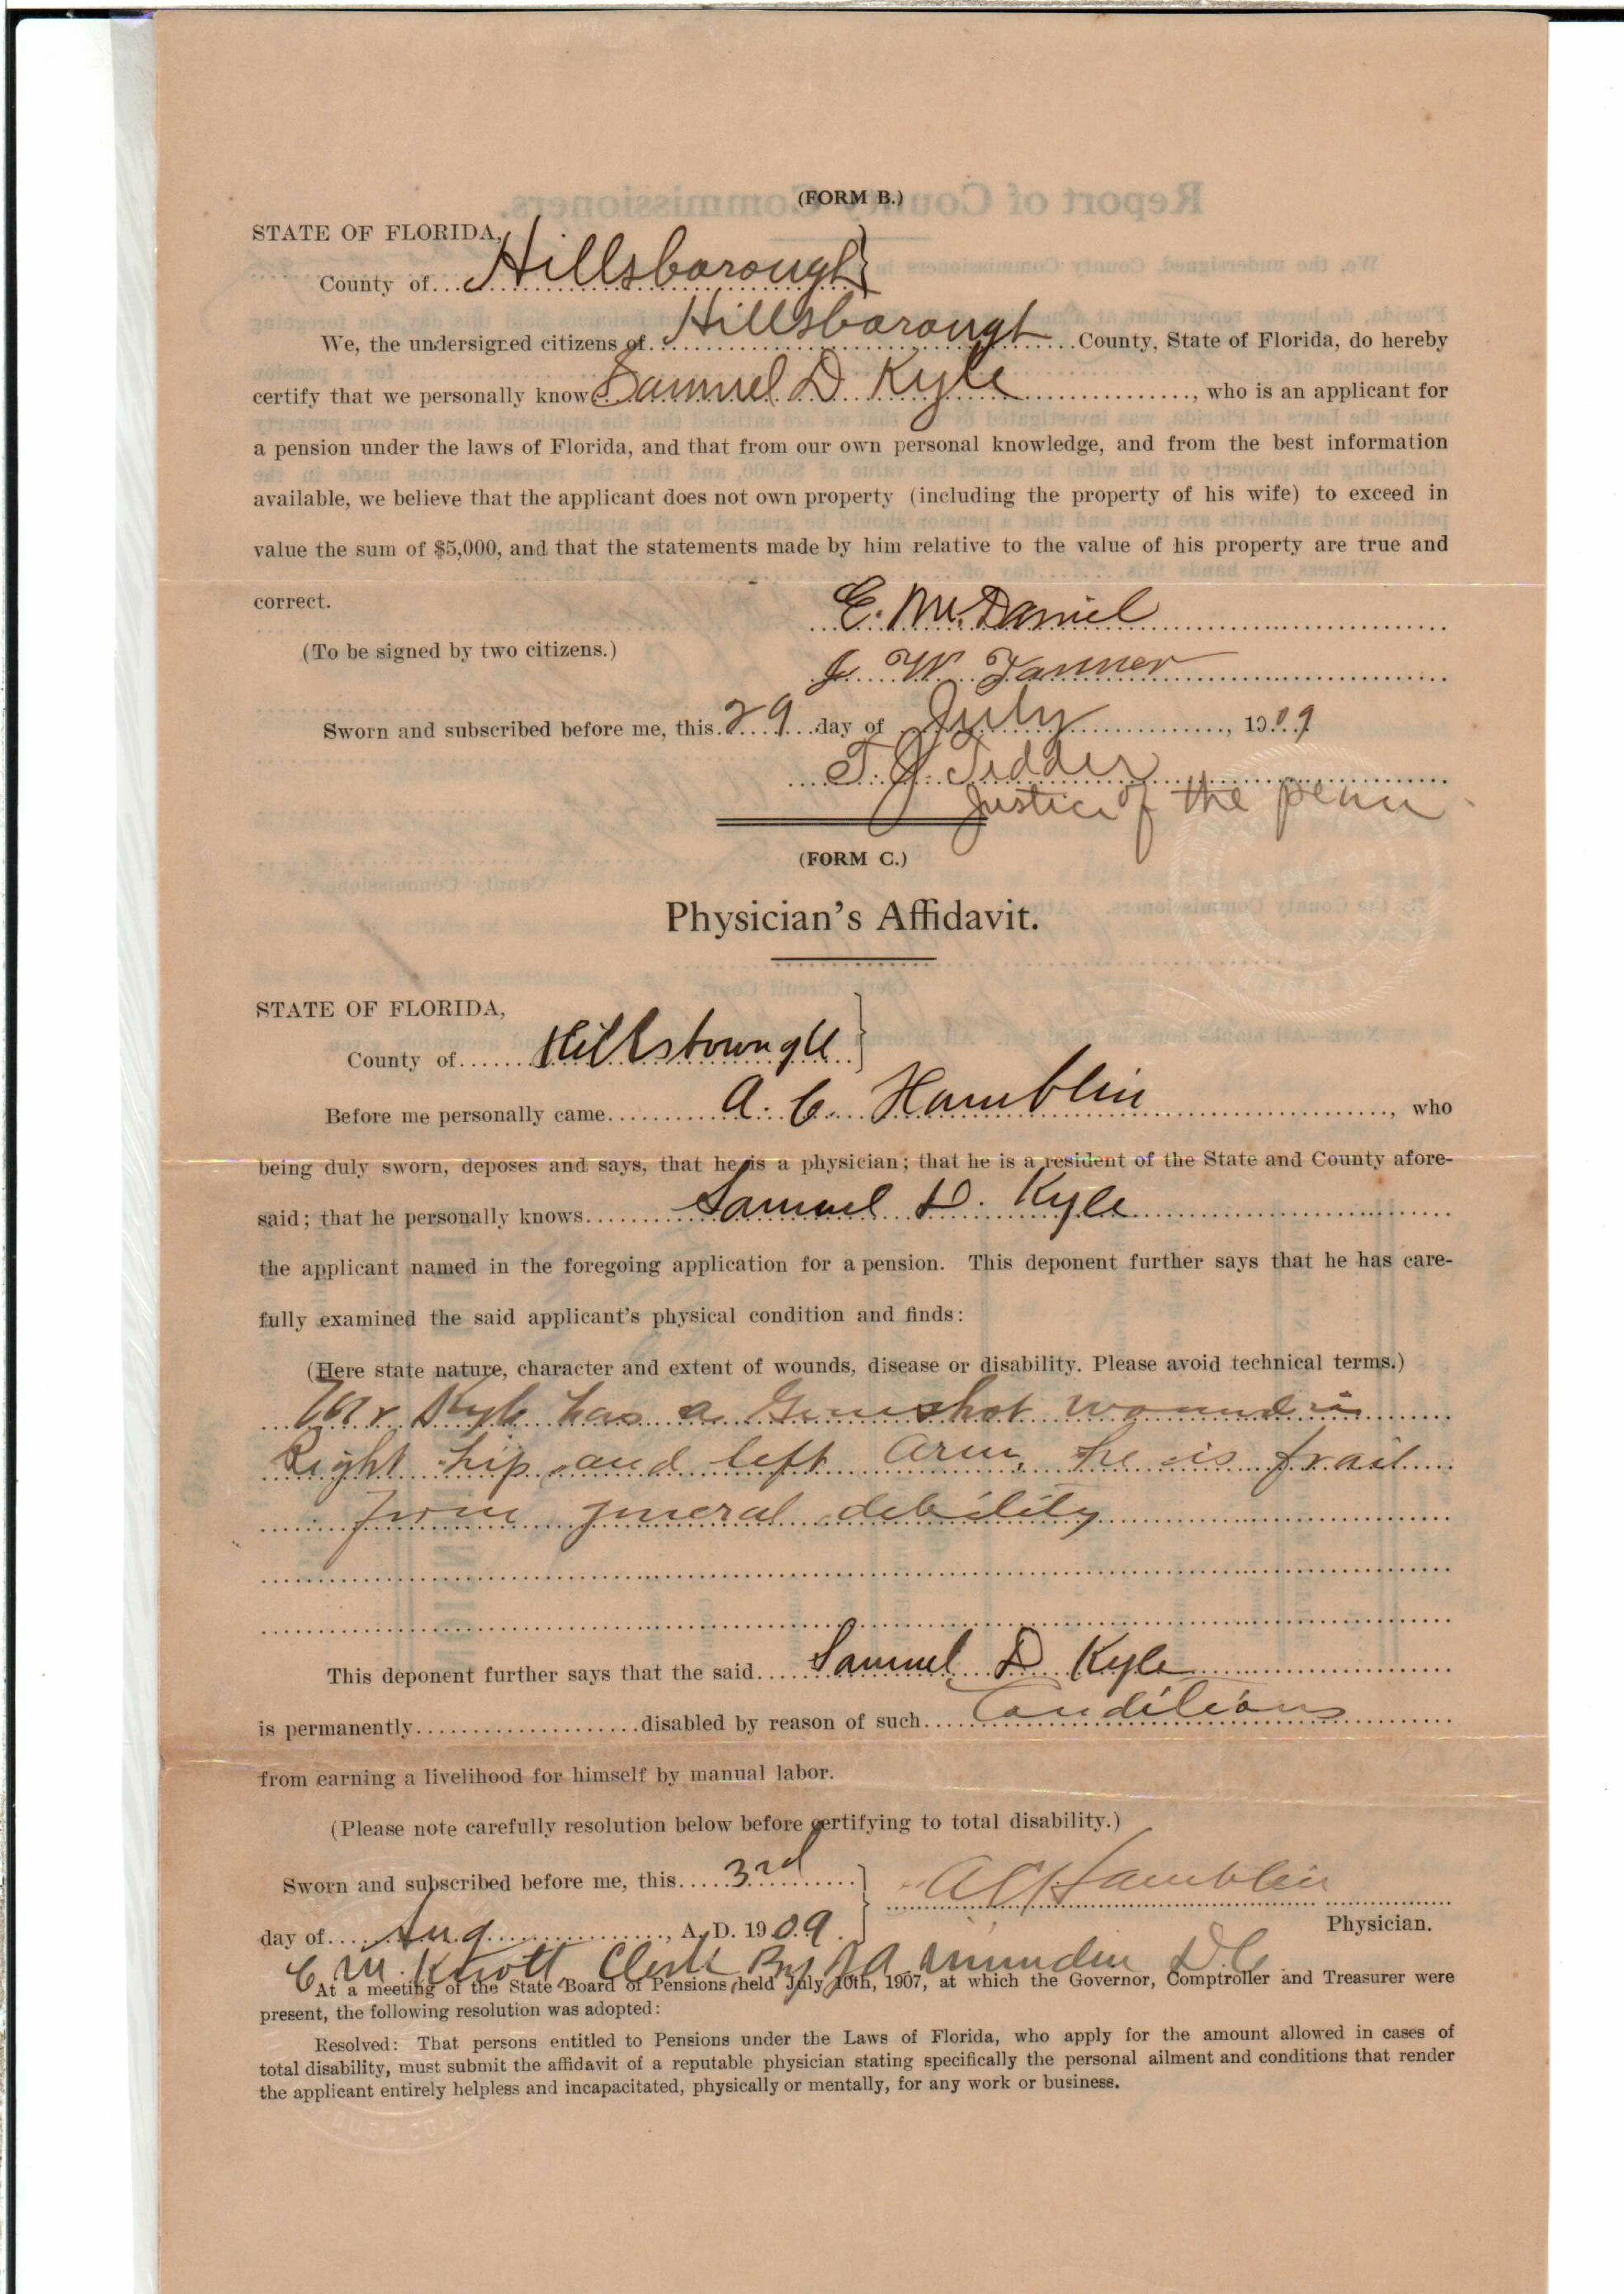 (FORM B.)
STATE OF FLORIDA,
County of Hillsborough
We, the undersigned citizens of Hillsborough County, State of Florida, do hereby
certify that we personally know Samuel D Kyle, who is an applicant for
a pension under the laws of Florida, and that from our own personal knowledge, and from the best information
available, we believe that the applicant does not own property (including the property of his wife) to exceed in
value the sum of $5,000, and that the statements made by him relative to the value of his property are true and
correct.
E. McDaniel
(To be signed by two citizens.)
J. W. Tanner
Sworn and subscribed before me, this 29 day of July, 1909
T. J. Tedder
Justice of the
(FORM C.)
Physician's Affidavit.
STATE OF FLORIDA,
County of Hillsborough
Before me personally came A. C. Hamblin, who
being duly sworn, deposes and says, that he is a physician; that he is a resident of the State and County afore-
said; that he personally knows Samuel D. Kyle
the applicant named in the foregoing application for a pension. This deponent further says that he has care-
fully examined the said applicant's physical condition and finds:
(Here state nature, character and extent of wounds, disease or disability. Please avoid technical terms.)
Mr Kyle has a Gunshot wound in
Right hip and left arm, he is frail
from general debility
This deponent further says that the said Samuel D Kyle
is permanently disabled by reason of such Conditions
from earning a livelihood for himself by manual labor.
(Please note carefully resolution below before certifying to total disability.)
Sworn and subscribed before me, this 3rd
A C Hamblin
day of Aug, A. D. 1909.
Physician.
C. M. Knott Clerk By D.C.
At a meeting of the State Board of Pensions, held July 10th, 1907, at which the Governor, Comptroller and Treasurer were
present, the following resolution was adopted:
Resolved: That persons entitled to Pensions under the Laws of Florida, who apply for the amount allowed in cases of
total disability, must submit the affidavit of a reputable physician stating specifically the personal ailment and conditions that render
the applicant entirely helpless and incapacitated, physically or mentally, for any work or business.